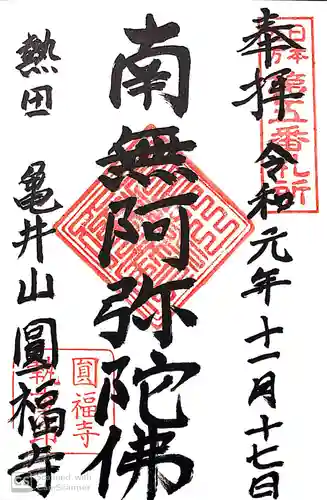 奉拝 令和元年十一月十七日
南無阿弥陀佛
熱田 亀井山 圓福寺
第五番札所
圓福寺
Scanned with
CamScanner